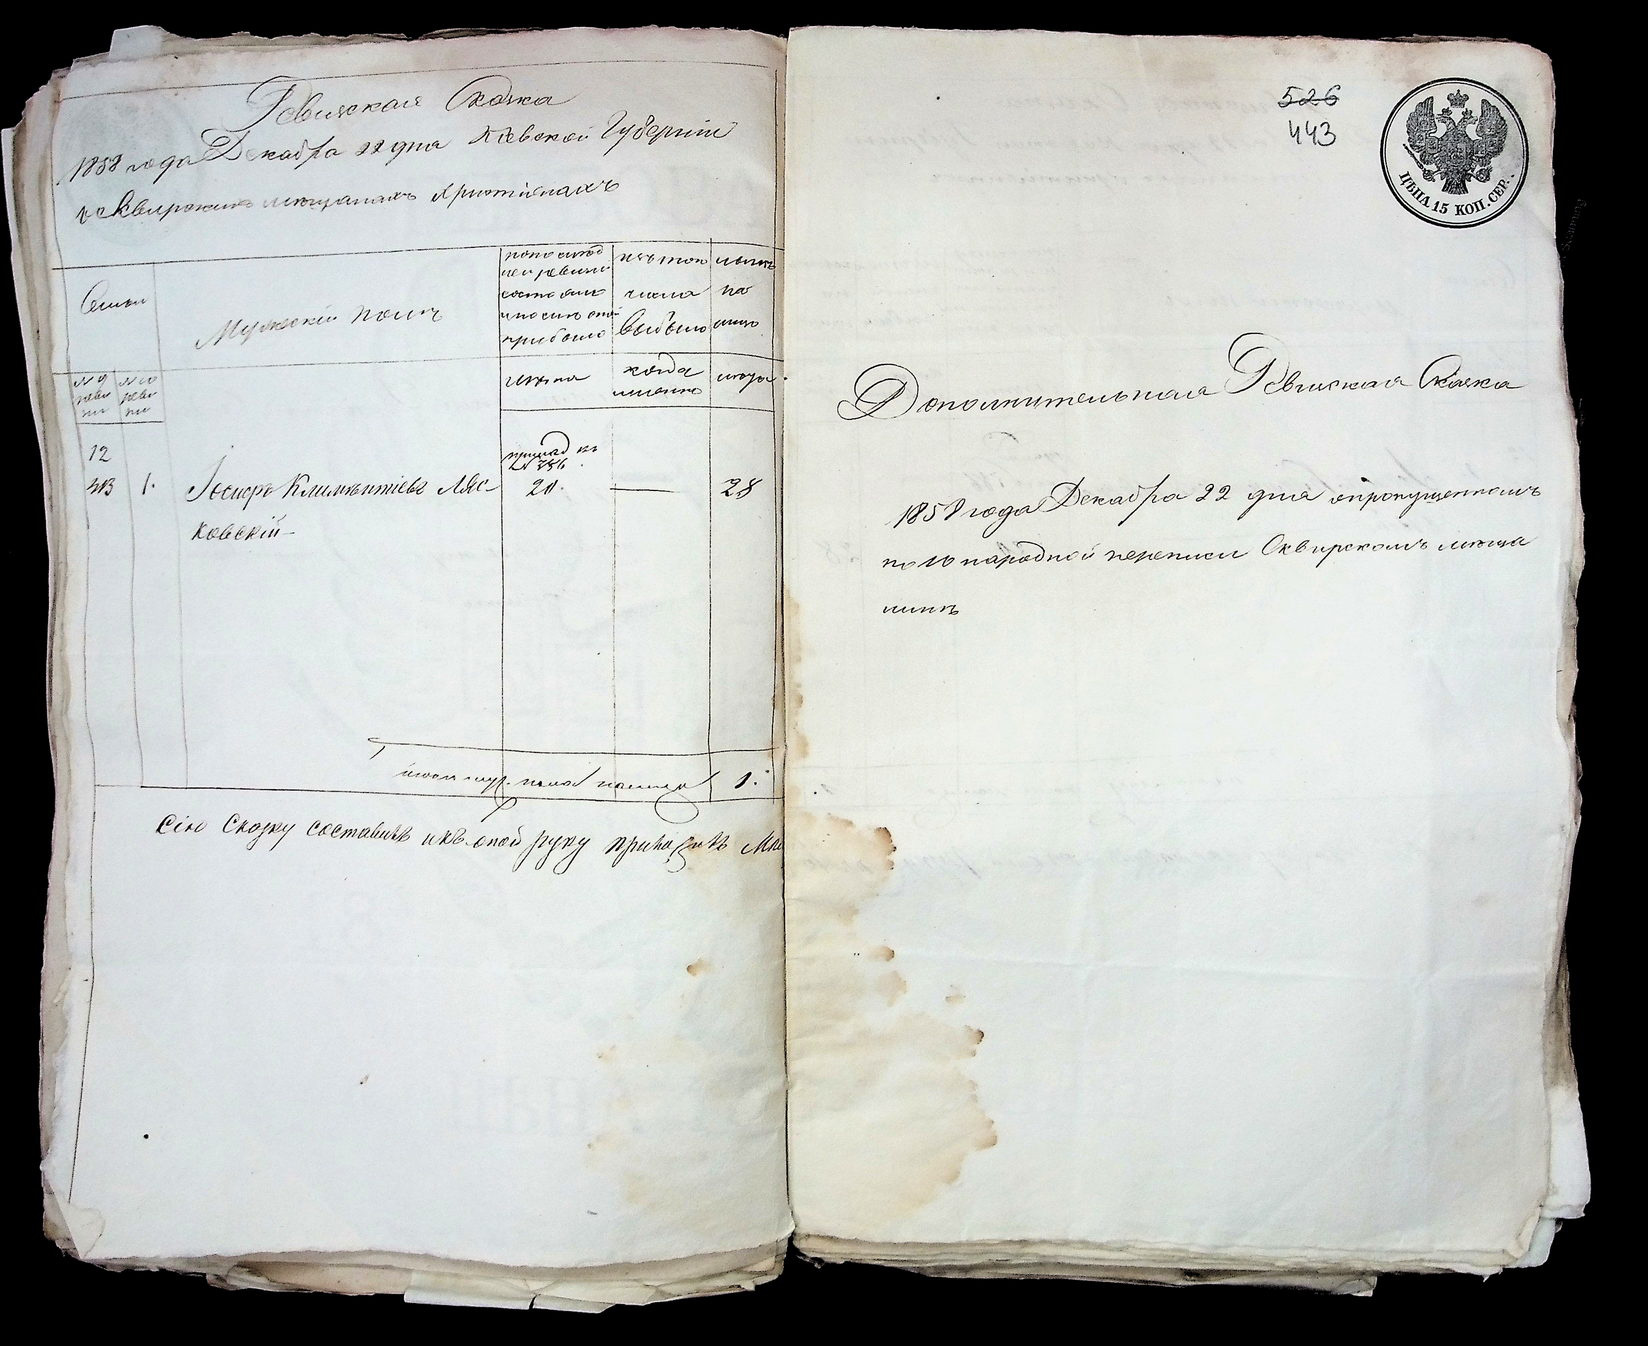 Ревизская Сказка
1858 года Декабря 22 дня Кіевской Губерніи
о Сквирскихъ мещанахъ христіянахъ
Семьи
Мужескій полъ
по последней ревизіи состояло и после оной прибыло
изъ того числа выбыло
ныне на лицо
№ 9 ревизіи
№ 10 ревизіи
лета
когда именно
лета
12
413 1. Іосифъ Климентіевъ Ляс-
ковскій
20. — 28
итого муж. пола на лицо 1.
Сію Сказку составилъ
526
443
ЦѢНА 15 КОП. СЕР.
Дополнительная Ревизская Сказка
1858 года Декабря 22 дня опропущенномъ
по 10 народной переписи Сквирскомъ меща
нине